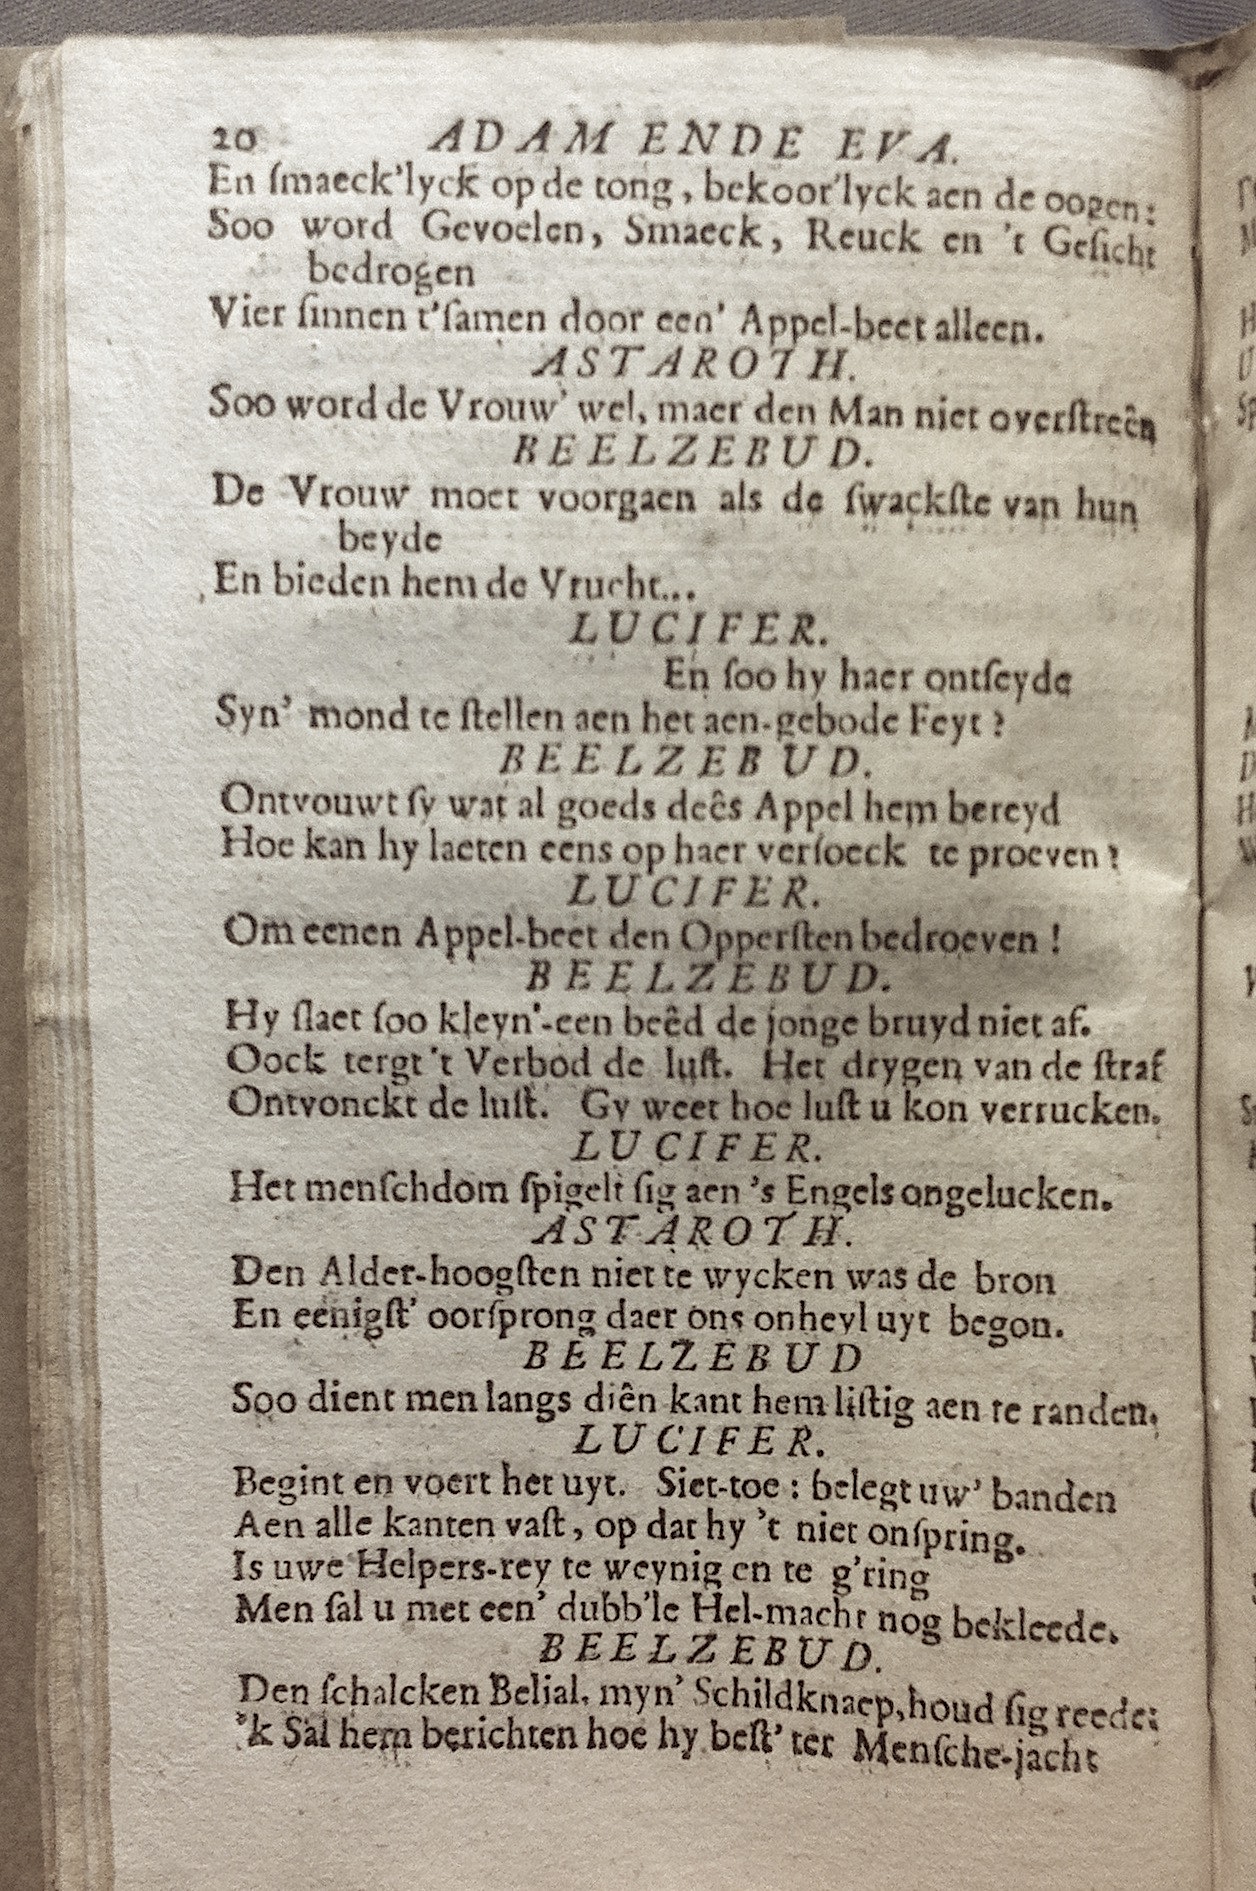 20 ADAM ENDE EVA.
En ſmaeck'lyck op de tong, bekoor'lyck aen de oogen:
Soo word Gevoelen, Smaeck, Reuck en 't Geſicht
bedrogen
Vier ſinnen t'ſamen door een' Appel-beet alleen.
ASTAROTH.
Soo word de Vrouw' wel, maer den Man niet overſtreên
BEELZEBUD.
De Vrouw moet voorgaen als de ſwackſte van hun
beyde
En bieden hem de Vrucht...
LUCIFER.
En ſoo hy haer ontſeyde
Syn' mond te ſtellen aen het aen-gebode Feyt?
BEELZEBUD.
Ontvouwt ſy wat al goeds deês Appel hem bereyd
Hoe kan hy laeten eens op haer verſoeck te proeven?
LUCIFER.
Om eenen Appel-beet den Opperſten bedroeven!
BEELZEBUD.
Hy ſlaet ſoo kleyn'-een beêd de jonge bruyd niet af.
Oock tergt 't Verbod de luſt. Het drygen van de ſtraf
Ontvonckt de luſt. Gy weet hoe luſt u kon verrucken.
LUCIFER.
Het menſchdom ſpigelt ſig aen 's Engels ongelucken.
ASTAROTH.
Den Alder-hoogſten niet te wycken was de bron
En eenigſt' oorſprong daer ons onheyl uyt begon.
BEELZEBUD
Soo dient men langs diên kant hem liſtig aen te randen.
LUCIFER.
Begint en voert het uyt. Siet-toe: belegt uw' banden
Aen alle kanten vaſt, op dat hy 't niet onſpring.
Is uwe Helpers-rey te weynig en te g'ring
Men ſal u met een' dubb'le Hel-macht nog bekleede.
BEELZEBUD.
Den ſchalcken Belial, myn' Schildknaep, houd ſig reede:
'k Sal hem berichten hoe hy beſt' ter Menſche-jacht